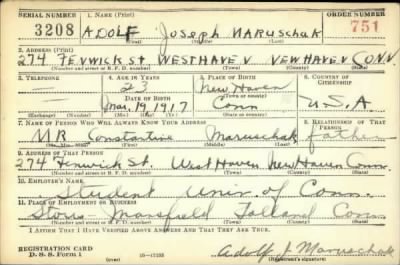 SERIAL NUMBER 1. NAME (Print) ORDER NUMBER
3208 ADOLF Joseph MARUSCHAK 751
(First) (Middle) (Last)
2. ADDRESS (Print)
274 FENWICK St WESTHAVEN NEWHAVEN CONN.
(Number and street or R. F. D. number) (Town) (County) (State)
3. TELEPHONE 4. AGE IN YEARS 5. PLACE OF BIRTH 6. COUNTRY OF CITIZENSHIP
— 23 New Haven
DATE OF BIRTH (Town or county)
— Mar. 19 1917 Conn U.S.A
(Exchange) (Number) (Mo.) (Day) (Yr.) (State or country)
7. NAME OF PERSON WHO WILL ALWAYS KNOW YOUR ADDRESS 8. RELATIONSHIP OF THAT PERSON
MR Constantine Maruschak father
(Mr., Mrs., Miss) (First) (Middle) (Last)
9. ADDRESS OF THAT PERSON
274 Fenwick St. West Haven New Haven Conn.
(Number and street or R. F. D. number) (Town) (County) (State)
10. EMPLOYER'S NAME
Student Univ. of Conn.
11. PLACE OF EMPLOYMENT OR BUSINESS
Storrs Mansfield Tolland Conn
(Number and street or R. F. D. number) (Town) (County) (State)
I AFFIRM THAT I HAVE VERIFIED ABOVE ANSWERS AND THAT THEY ARE TRUE.
REGISTRATION CARD
D. S. S. Form 1 (over) Adolf J. Maruschak
(Registrant's signature)